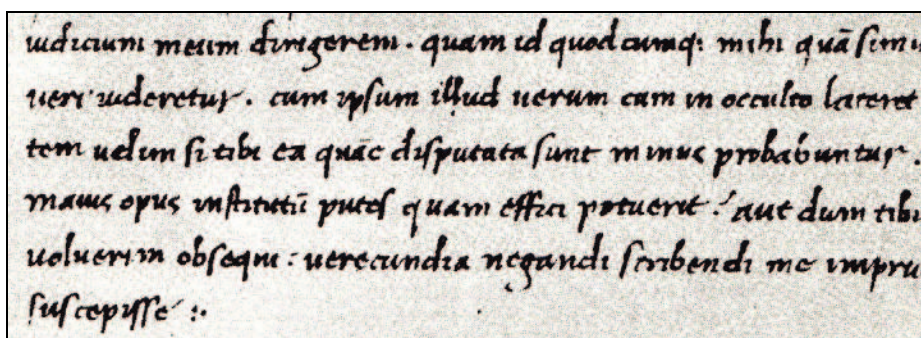 iudicium meum dirigerem. quam id quodcumq: mihi quā simi
ueri uideretur. cum ipsum illud uerum tam in occulto lateret
tem uelim si tibi ea quae disputata sunt minus probabuntur.
maius opus institutū putes quam effici potuerit. aut dum tibi
uoluerim obsequi: uerecundia negandi scribendi me impru
suscepisse :.